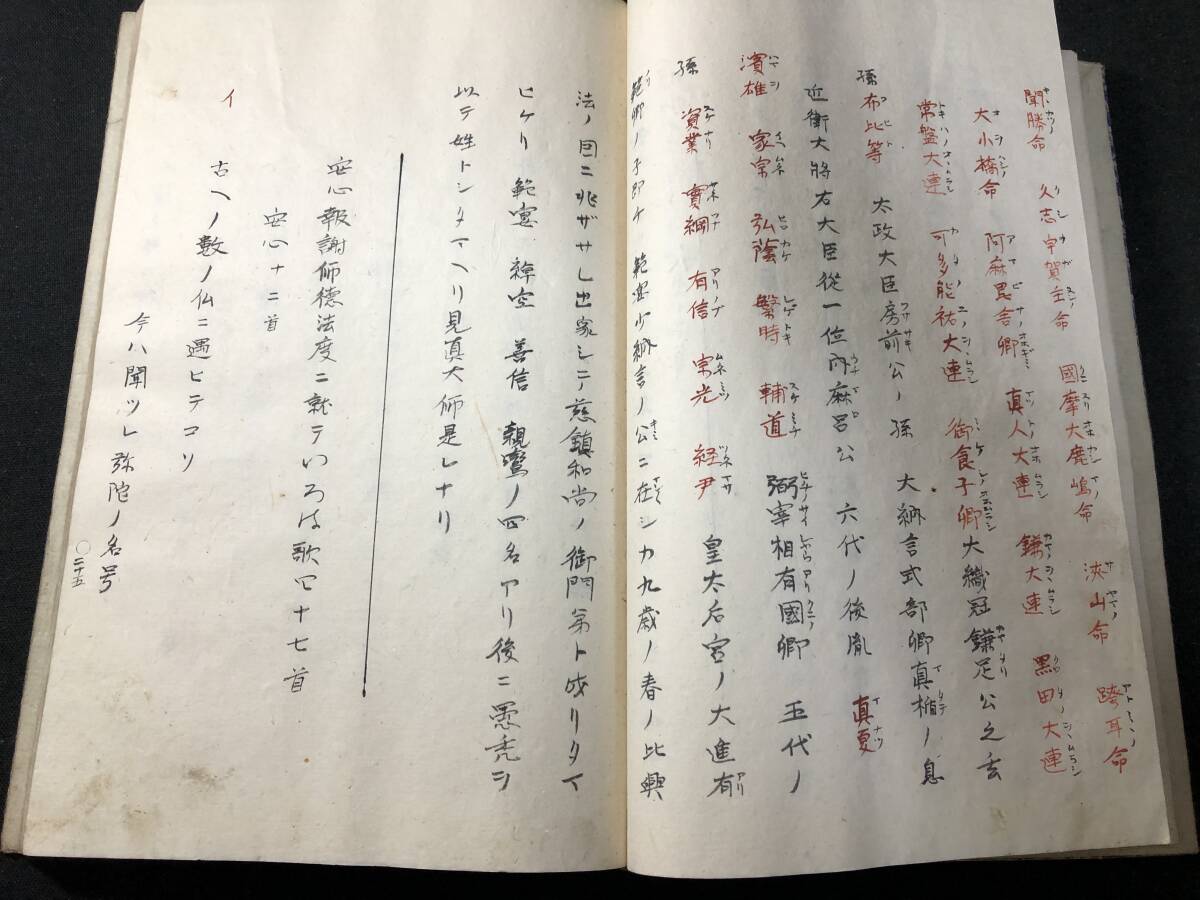 聞勝命 久志宇賀主命 國摩大鹿嶋命 狹山命 跨耳命
大小橋命 阿麻毘舎卿 真人大連 鎌大連 黒田大連
常盤大連 可多能祐大連 御食子卿 大織冠鎌足公之玄
孫 布比等 太政大臣房前公ノ孫 大納言式部卿真楯ノ息
近衛大將右大臣從一位内麻呂公 六代ノ後胤 真夏
濱雄 家宗 弘蔭 繁時 輔道 弼宰相有國卿 五代ノ
孫 資業 實綱 有信 宗光 経尹 皇太后宮ノ大進有
範卿ノ子即チ 範宴少納言ノ公ニ在シカ九歳ノ春ノ比興
法ノ因ニ兆ザサレ出家シテ慈鎮和尚ノ御門弟ト成リタマ
ヒケリ 範宴 禅空 善信 親鸞ノ四名アリ後ニ愚禿ヲ
以テ姓トシタマヘリ見真大師是レナリ
安心報謝師徳法度ニ就テいろは歌四十七首
安心十二首
イ 古ヘノ數ノ仏ニ遇ヒテコソ
今ハ聞ツレ弥陀ノ名号
○二十五